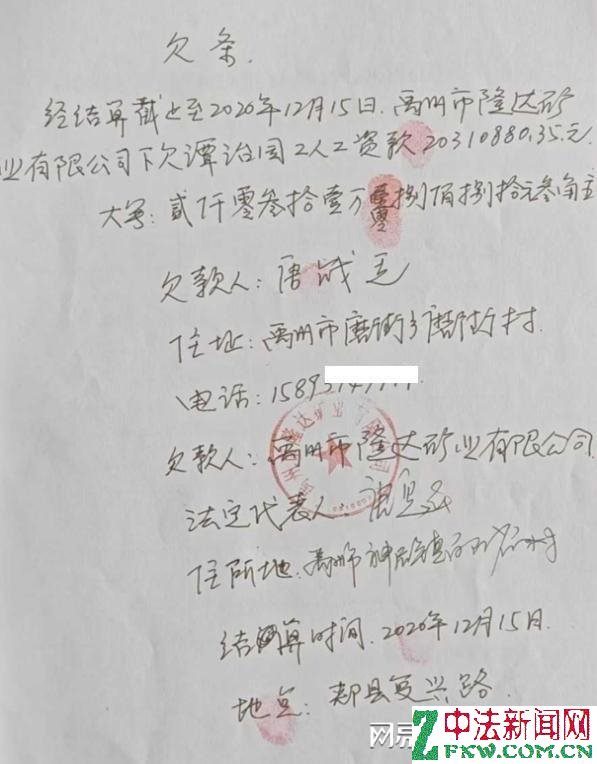 欠条.
经结算截止至2020年12月15日.禹州市隆达矿
业有限公司下欠谭治国工人工资款20310880.35元.
大写:贰仟零叁拾壹万零捌佰捌拾元叁角
欠款人:唐
住址:禹州市磨街乡磨街村.
电话:15893
欠款人:禹州市隆达矿业有限公司
法定代表人:
住所地:禹州市神垕镇
结算时间.2020年12月15日.
地点:郏县复兴路.
网易
中法新闻网
ZFXW.COM.CN